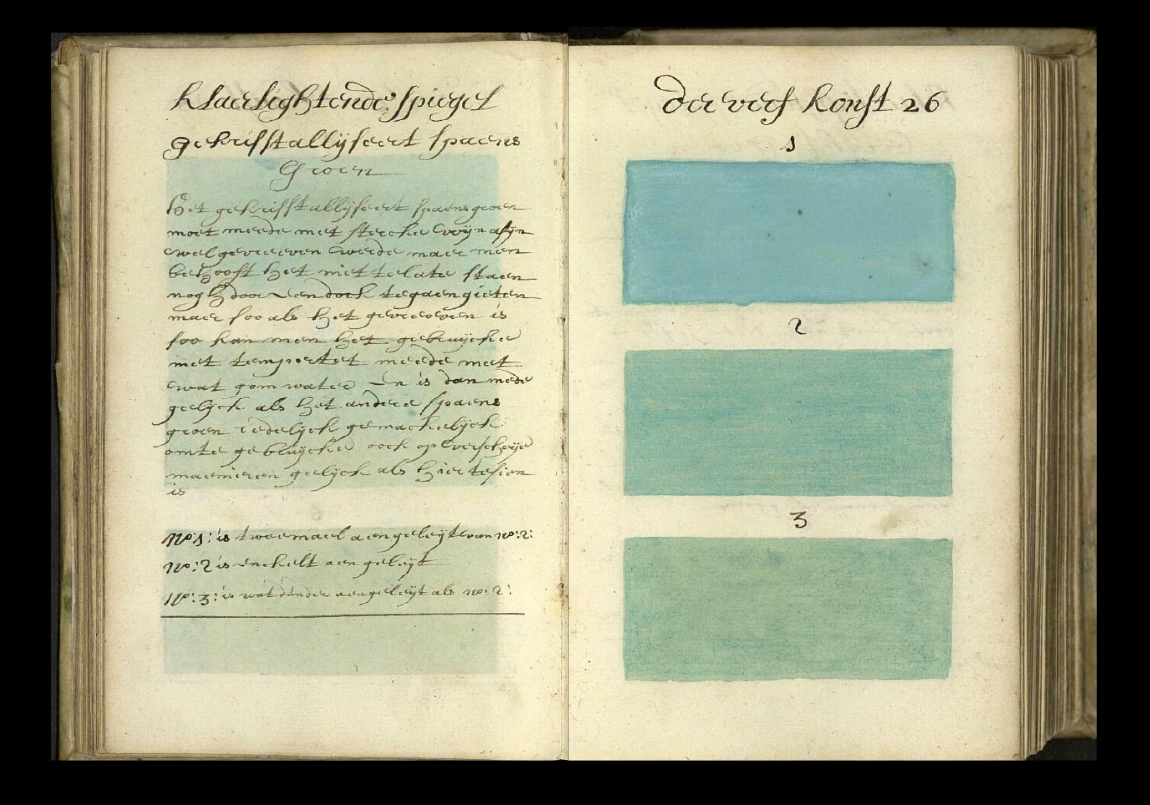 klaerlightende spiegel
gekrisstallyseert spaens
Groen
Het gekrisstallyseert spaens groen
moet meede met stercke wyn asyn
wel gevreeven werde maer men
behooft het niet te late staen
nogh door den dock tegaen gieten
maer soo als het gevreeven is
soo kan men het gebruycke
met tempertet meede met
wat gom water En is dan mede
gelyck als het andere spaens
groen redelyck gemackelyck
omte gebruycke oock op verscheyde
manieren gelyck als hier te sien
is
No 1: is twee mael aengeleyt van no: 2:
No: 2 is enckelt aen geleyt
No: 3: is wat dunder aengeleyt als no: 2:
der verf konst 26
1
2
3